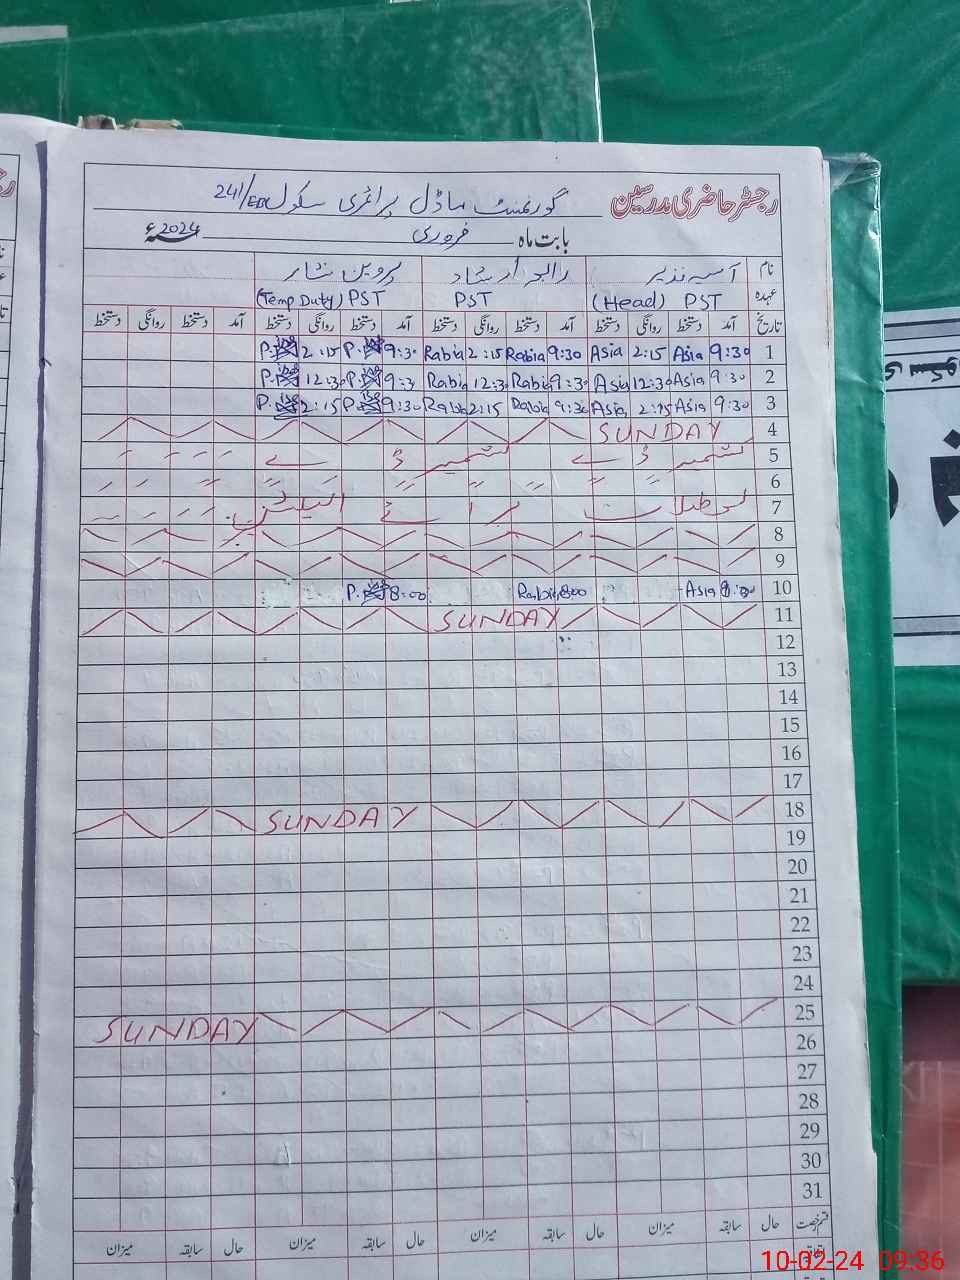 رجسٹر حاضری مدرسین گورنمنٹ ماڈل پرائمری سکول 241/EB
بابت ماہ فروری 2024ء
نام آسیہ نذیر رابعہ ارشاد پروین نثار
عہدہ (Head) PST PST (Temp Duty) PST
تاریخ آمد دستخط روانگی دستخط آمد دستخط روانگی دستخط آمد دستخط روانگی دستخط آمد دستخط روانگی دستخط
1 9:30 Asia 2:15 Asia 9:30 Rabia 2:15 Rabia 9:30 P. 2:15 P.
2 9:30 Asia 12:30 Asia 9:30 Rabia 12:30 Rabia 9:30 P. 12:30 P.
3 9:30 Asia 2:15 Asia 9:30 Rabia 2:15 Rabia 9:30 P. 2:15 P.
4 SUNDAY
5 کشمیر ڈے کشمیر ڈے
6
7 تعطیلات برائے الیکشن
8
9
10 Asia Rabia 8:00 P. 8:00
11 SUNDAY
12
13
14
15
16
17
18 SUNDAY
19
20
21
22
23
24
25 SUNDAY
26
27
28
29
30
31
قسم رخصت حال سابقہ میزان حال سابقہ میزان حال سابقہ میزان حال سابقہ میزان
10-02-24 09:36